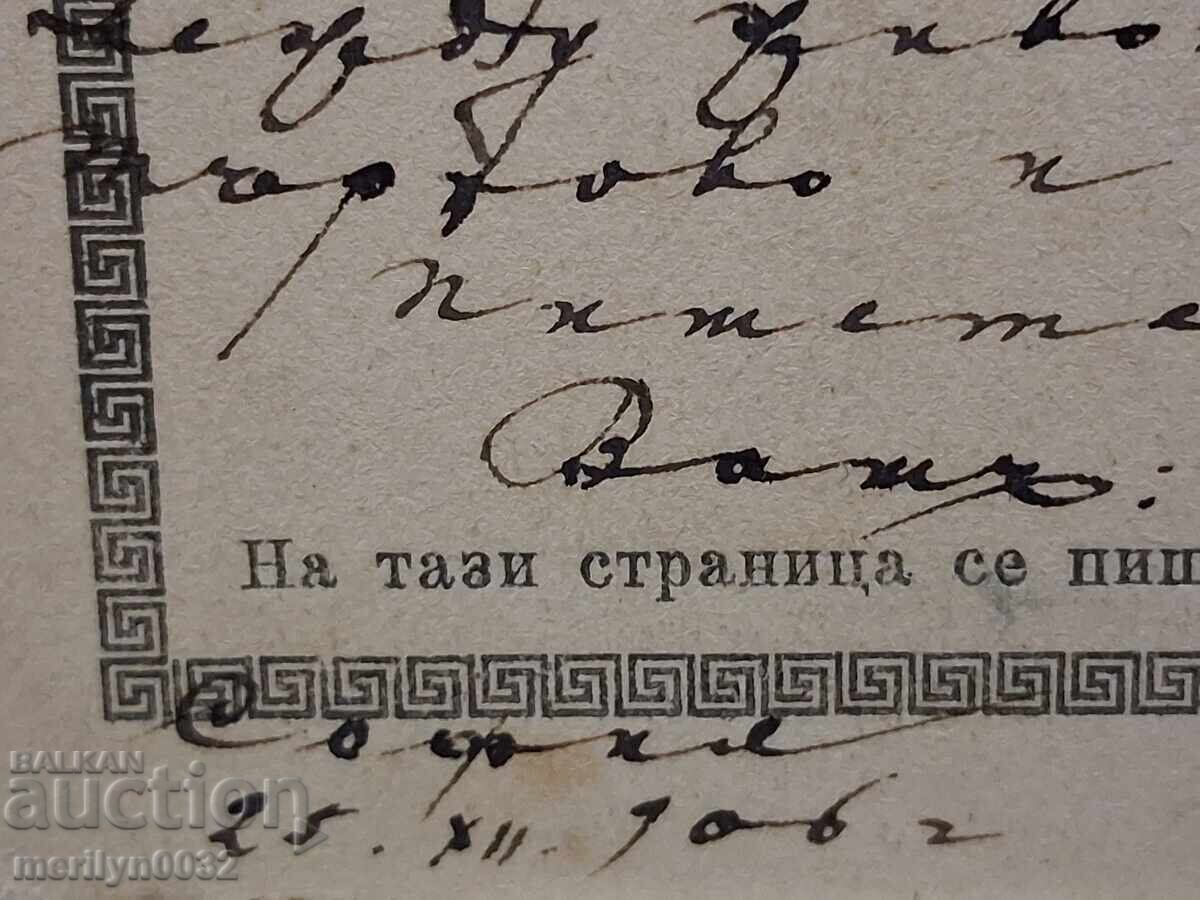 и
Пишете
Вашъ:
На тази страница се пиш
София
25. XII. 906 г
BALKAN
auction
merilyn0032